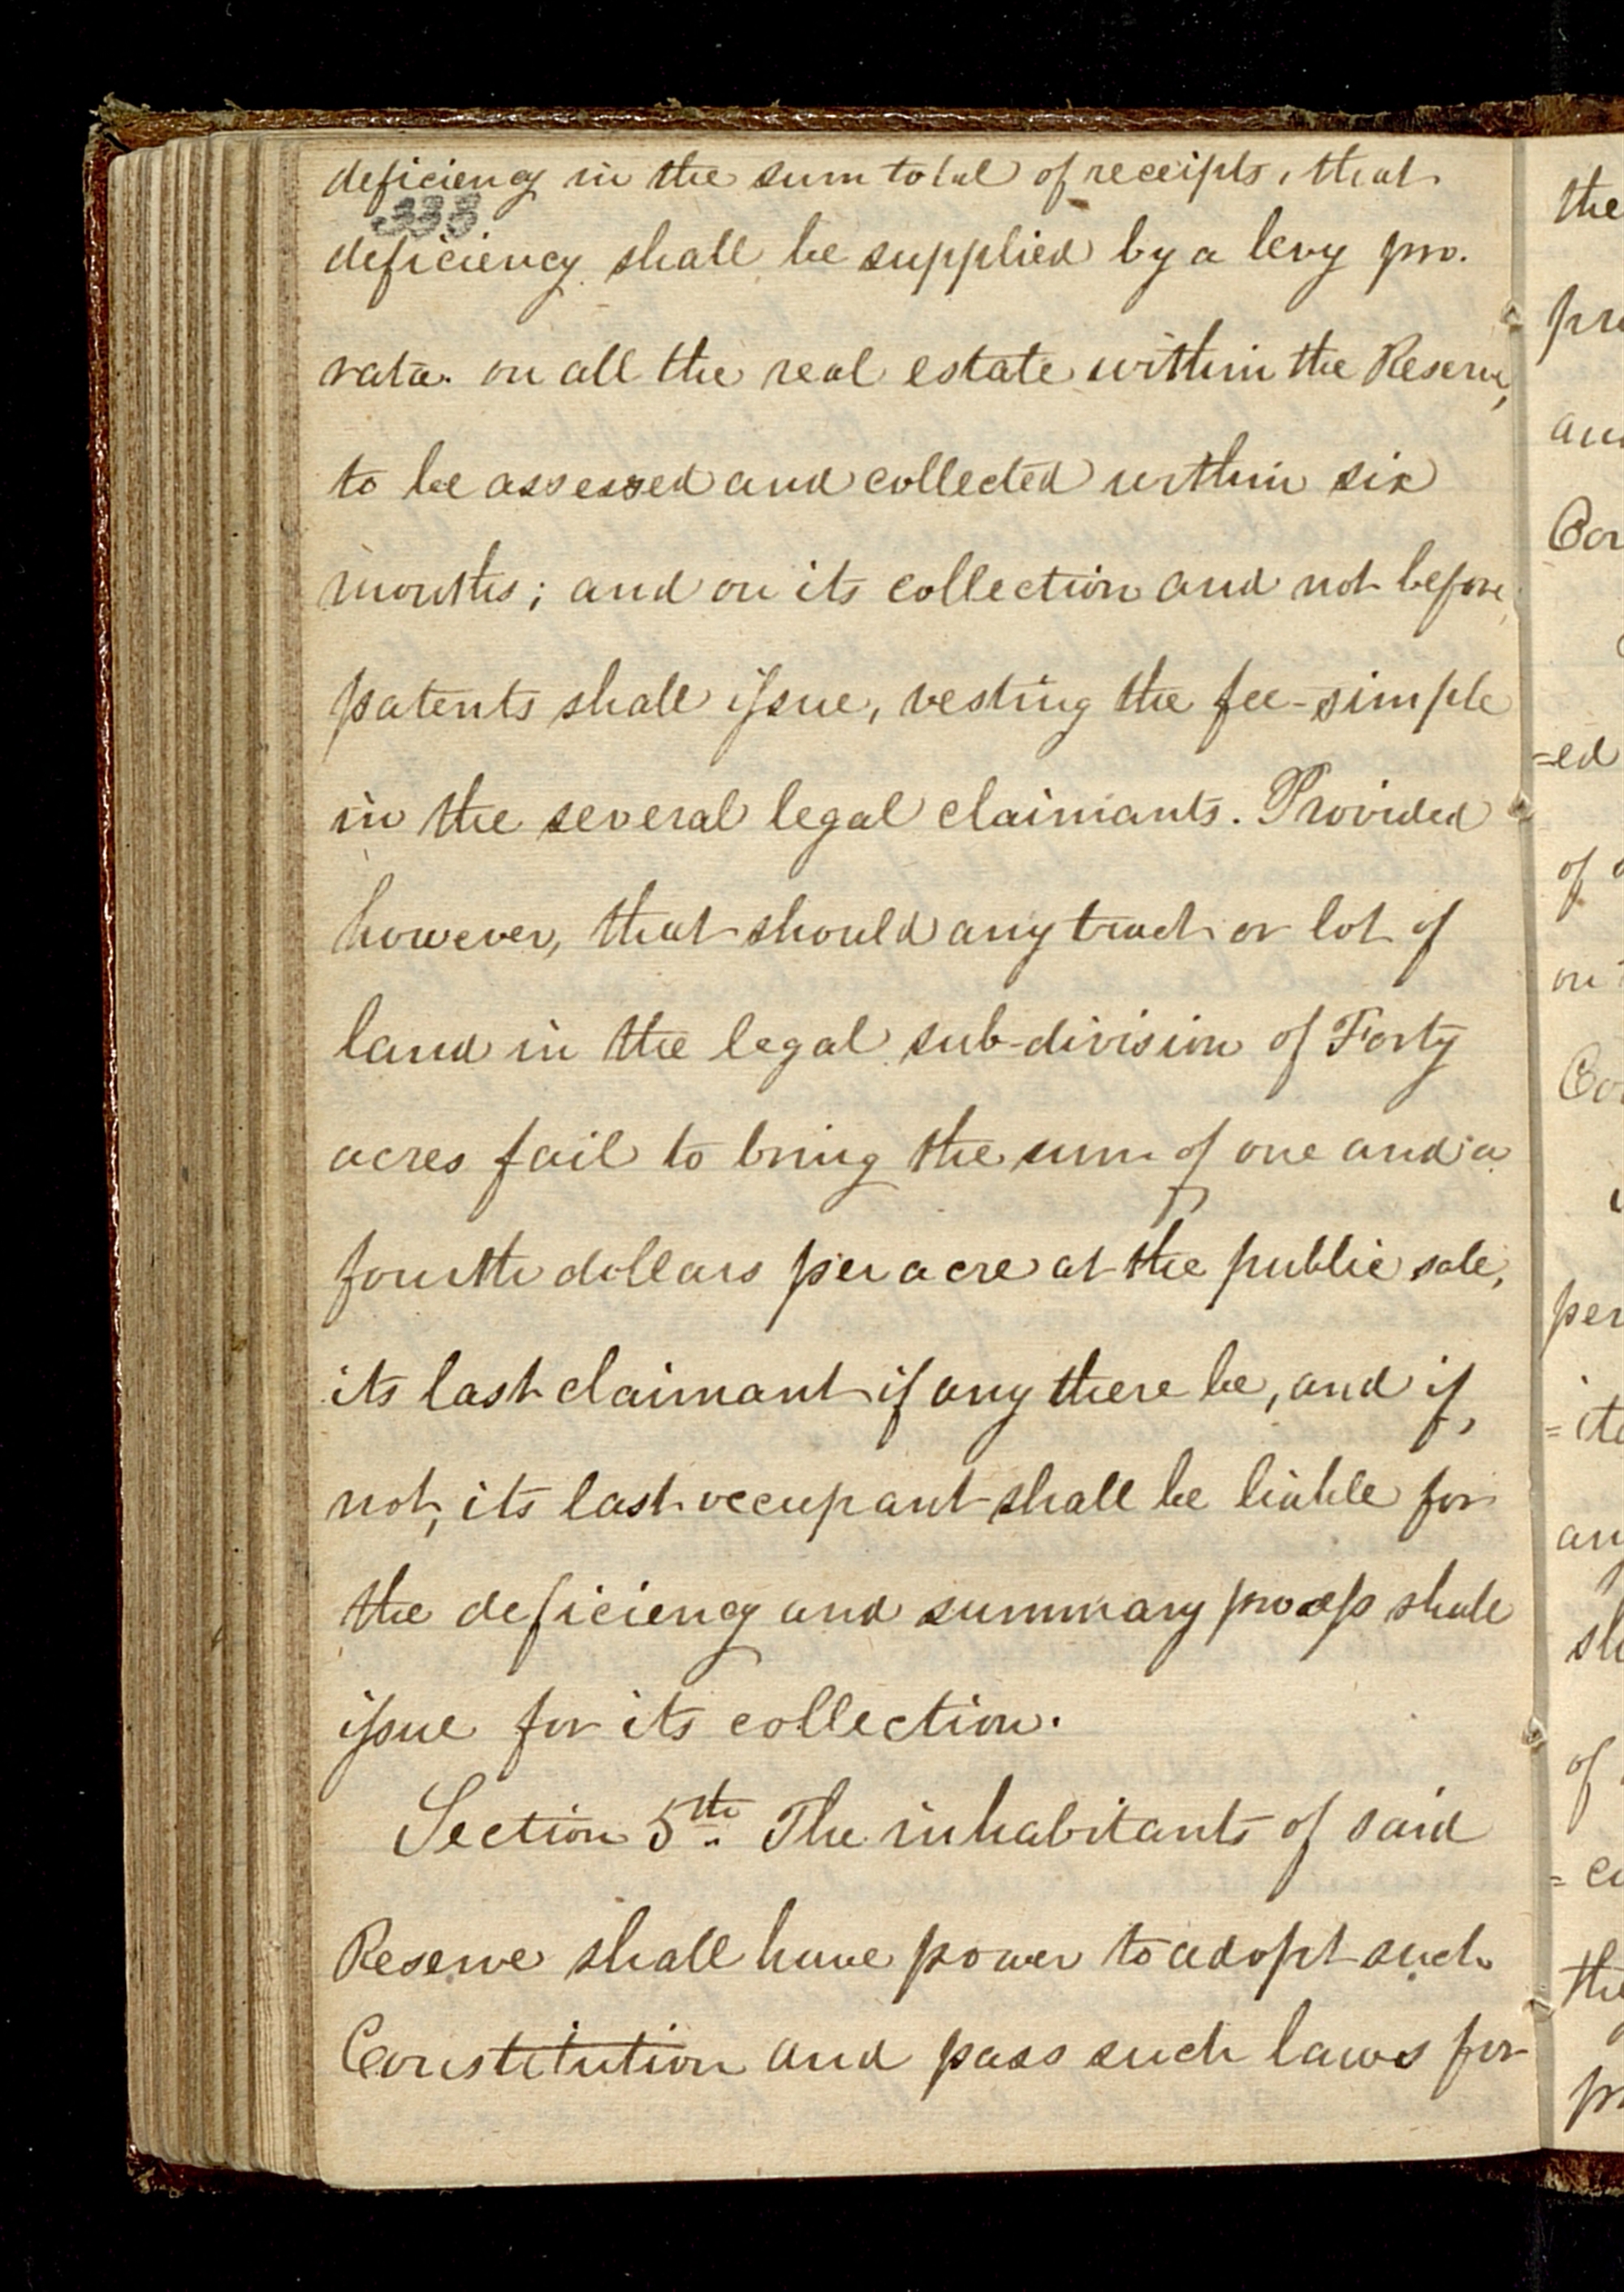 deficiency in the sum total of receipts, that
333
deficiency shall be supplied by a levy pro.
rata. on all the real estate within the Reserve,
to be assessed and collected within six
months; and on its collection and not before
patents shall issue, vesting the fee-simple
in the several legal claimants. Provided
however, that should any tract or lot of
land in the legal sub-division of Forty
acres fail to bring the sum of one and a
fourth dollars per acre at the public sale,
its last claimant if any there be, and if,
not, its last occupant shall be liable for
the deficiency and summary process shall
issue for its collection.
Section 5th. The inhabitants of said
Reserve shall have power to adopt such
Constitution and pass such laws for
the
pr
an
Con
=ed
of
on
Co
per
=ite
any
sh
of
=
the
pr